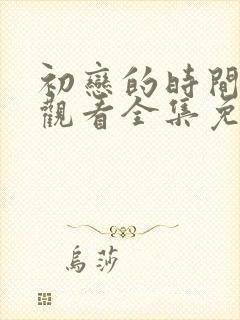 初戀的時間
觀看全集免
烏莎